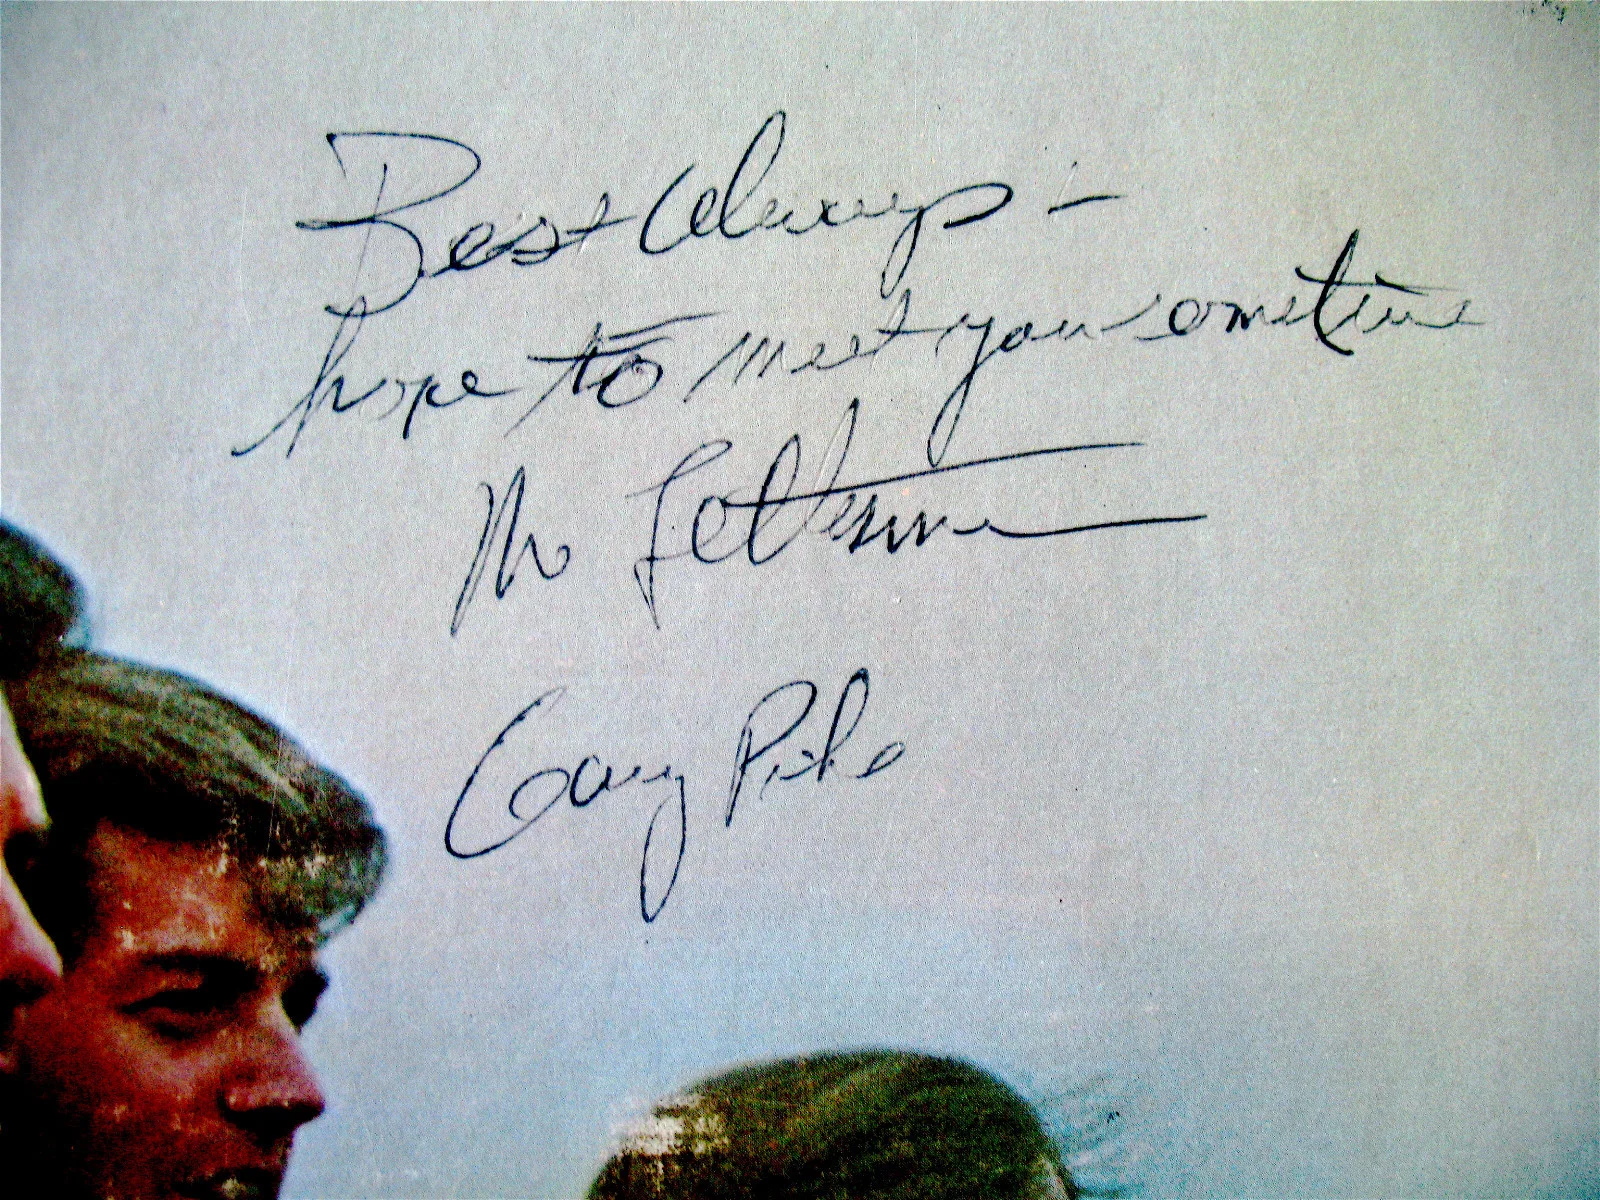 Best Always -
hope to meet you sometime
The Lettermen
Gary Pike